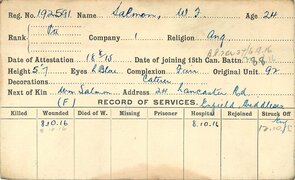 Reg. No. 192591 Name Salmon, W. J. Age 24
Rank Pte Company 1 Religion Ang
Date of Attestation 18/8/15 Date of joining 15th Can. Battn.
Height 5.7 Eyes L Blue Complexion Fair Original Unit 92
Decorations Caterer
Next of Kin Wm. Salmon Address 24 Lancaster Rd
(F) RECORD OF SERVICES. Enfield Middlesex
Killed Wounded Died of W. Missing Prisoner Hospital Rejoined Struck Off
8.10.16 8.10.16
8.10.16